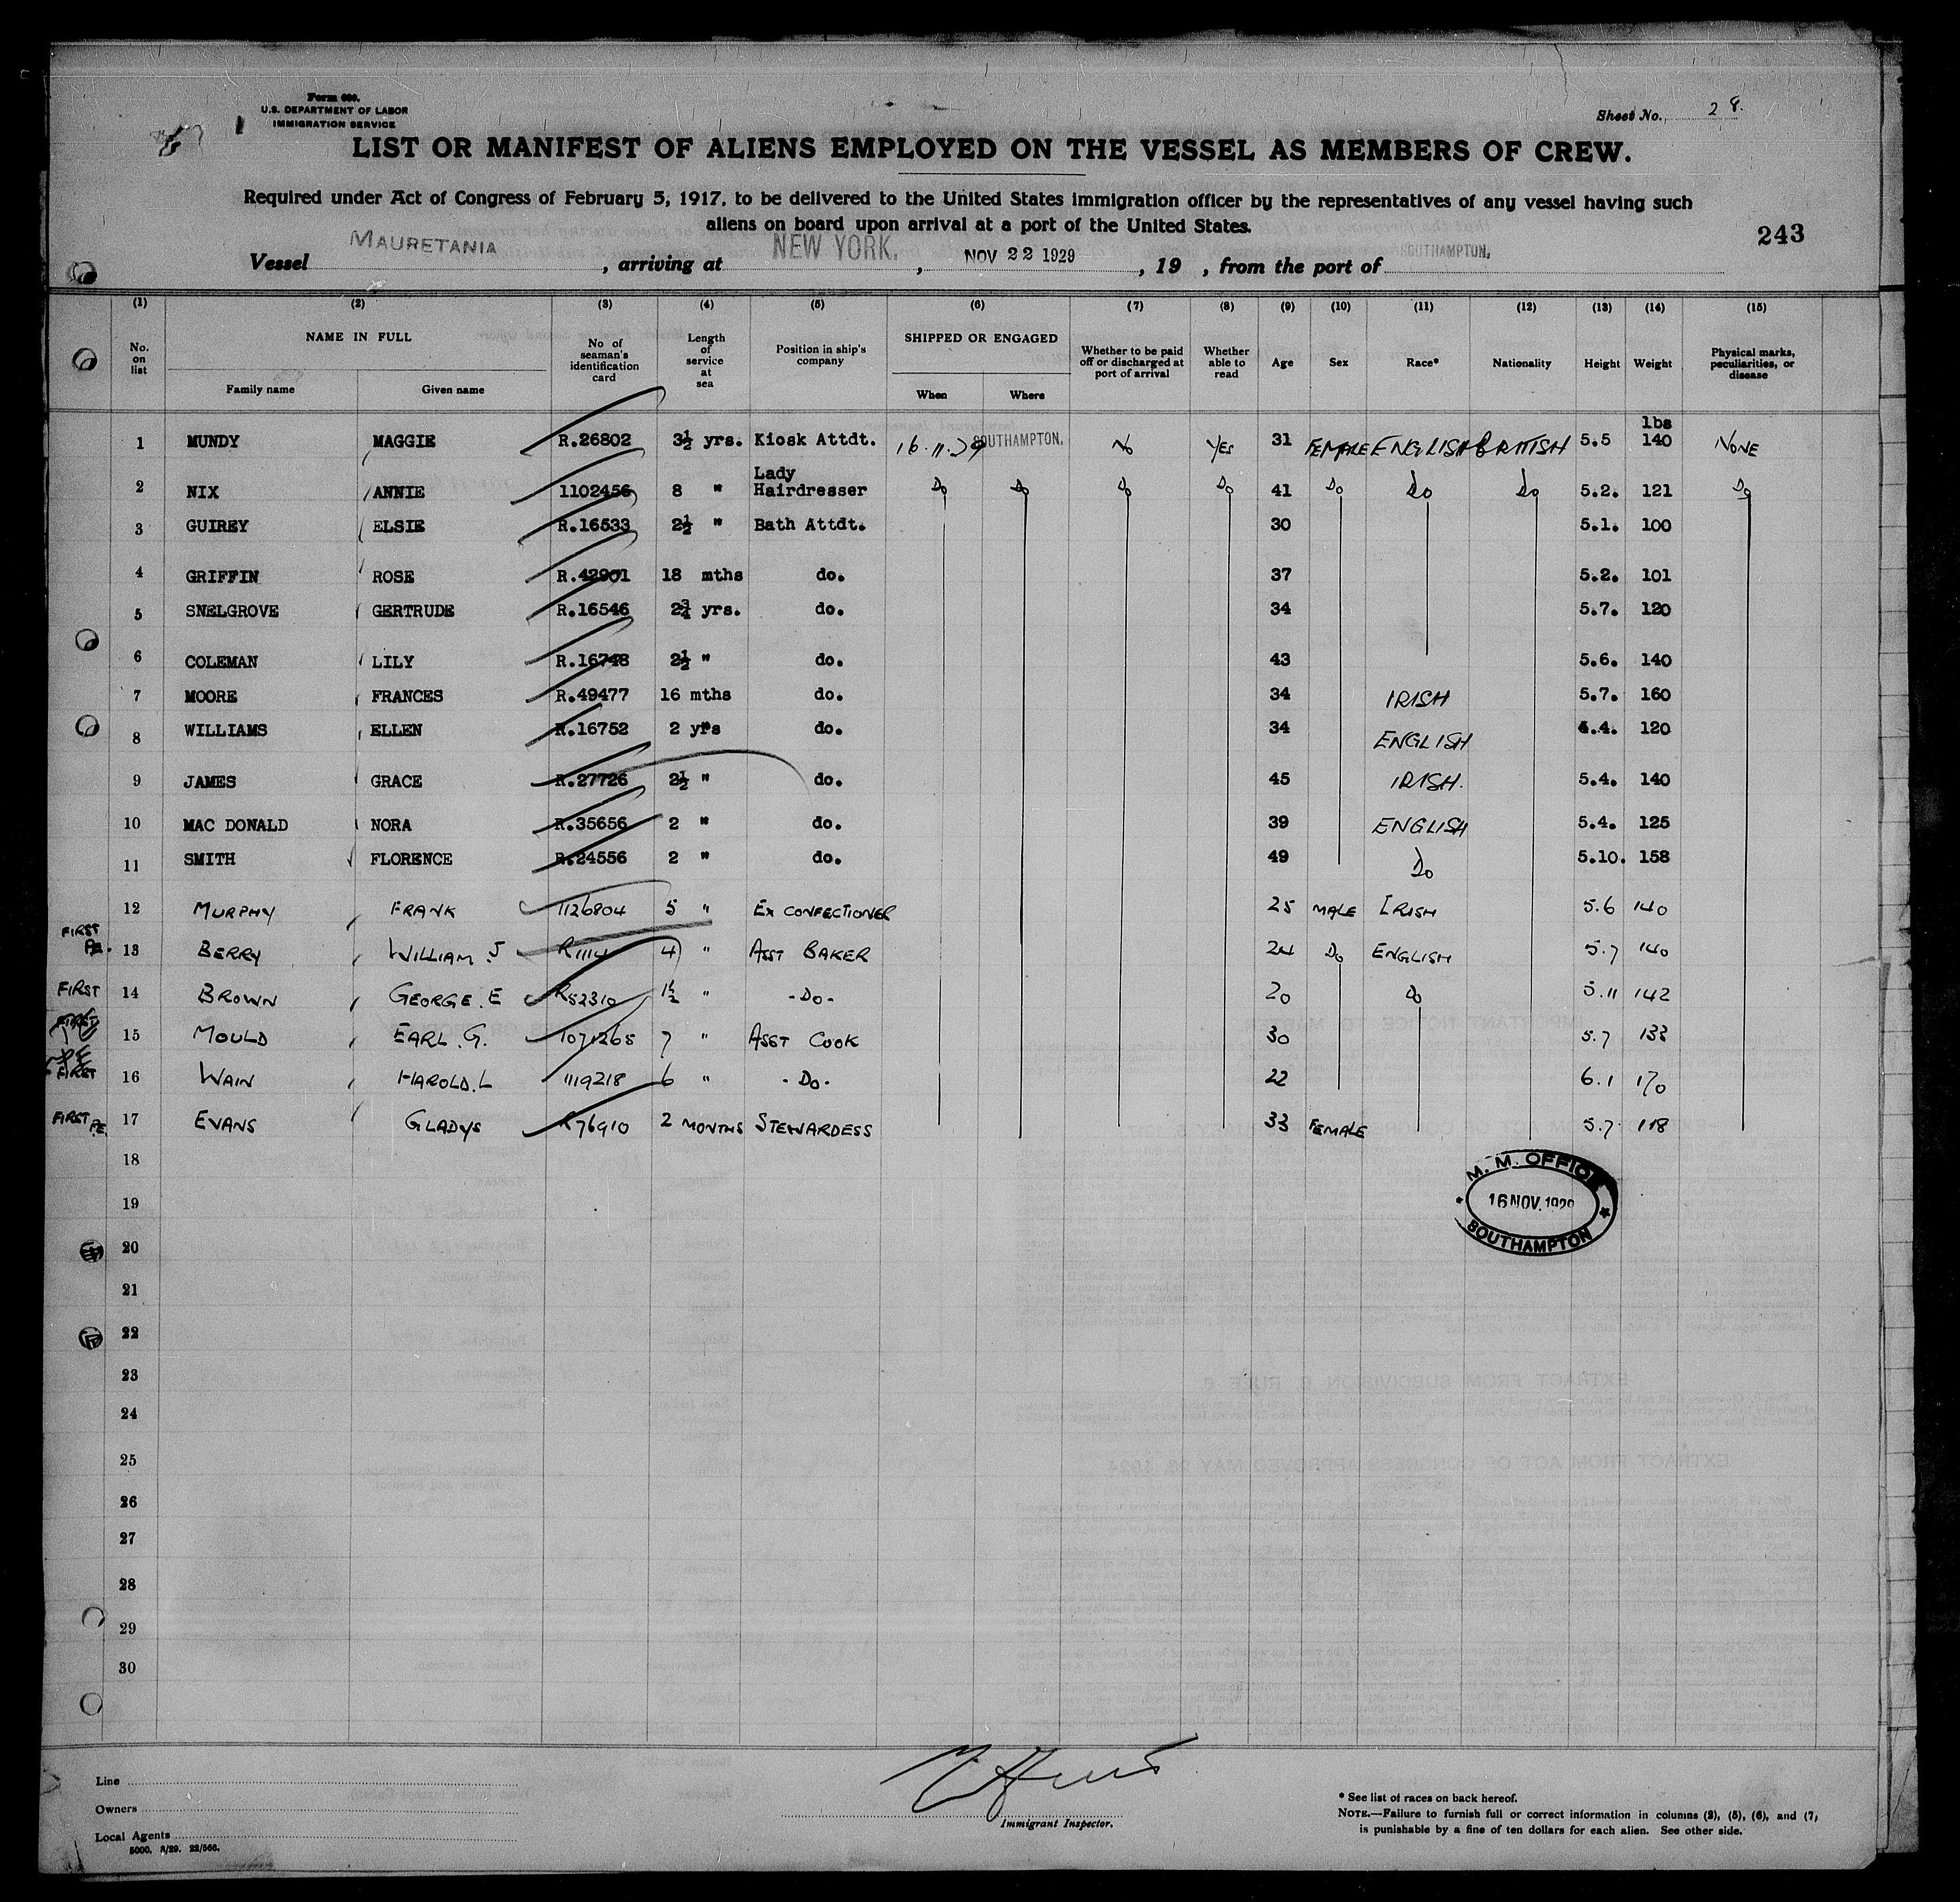 Form 680.
U.S. DEPARTMENT OF LABOR
IMMIGRATION SERVICE
Sheet No. 28.
LIST OR MANIFEST OF ALIENS EMPLOYED ON THE VESSEL AS MEMBERS OF CREW.
Required under Act of Congress of February 5, 1917, to be delivered to the United States immigration officer by the representatives of any vessel having such
aliens on board upon arrival at a port of the United States.
243
Vessel MAURETANIA, arriving at NEW YORK., NOV 22 1929, 19 , from the port of SOUTHAMPTON.
(1) (2) (3) (4) (5) (6) (7) (8) (9) (10) (11) (12) (13) (14) (15)
No. on list NAME IN FULL Family name Given name No of seaman's identification card Length of service at sea Position in ship's company SHIPPED OR ENGAGED When Where Whether to be paid off or discharged at port of arrival Whether able to read Age Sex Race* Nationality Height Weight Physical marks, peculiarities, or disease
lbs
1 MUNDY MAGGIE R.26802 3½ yrs. Kiosk Attdt. 16.11.29 SOUTHAMPTON. No Yes 31 FEMALE ENGLISH BRITISH 5.5 140 NONE
2 NIX ANNIE 1102456 8 " Lady Hairdresser Do Do Do Do 41 Do Do Do 5.2. 121 Do
3 GUIREY ELSIE R.16533 2½ " Bath Attdt. 30 5.1. 100
4 GRIFFIN ROSE R.42901 18 mths do. 37 5.2. 101
5 SNELGROVE GERTRUDE R.16546 2¾ yrs. do. 34 5.7. 120
6 COLEMAN LILY R.16748 2½ " do. 43 5.6. 140
7 MOORE FRANCES R.49477 16 mths do. 34 IRISH 5.7. 160
8 WILLIAMS ELLEN R.16752 2 yrs do. 34 ENGLISH 5.4. 120
9 JAMES GRACE R.27726 2½ " do. 45 IRISH. 5.4. 140
10 MAC DONALD NORA R.35656 2 " do. 39 ENGLISH 5.4. 125
11 SMITH FLORENCE R.24556 2 " do. 49 Do 5.10. 158
12 MURPHY FRANK 1126804 5 " Ex CONFECTIONER 25 MALE IRISH 5.6 140
FIRST PE. 13 BERRY WILLIAM J R1114 4 " ASST BAKER 24 Do ENGLISH 5.7 140
FIRST 14 BROWN GEORGE.E R52310 1½ " -Do- 20 Do 5.11 142
FIRST 15 MOULD EARL.G. 1071265 7 " ASST COOK 30 5.7 133
PE FIRST 16 WAIN HAROLD.L 1119218 6 " -Do- 22 6.1 170
FIRST PE. 17 EVANS GLADYS R76910 2 MONTHS STEWARDESS 33 FEMALE 5.7 118
18
M. M. OFFICE
19
16 NOV. 1929
SOUTHAMPTON
20
21
22
23
24
25
26
27
28
29
30
Line
Owners
Local Agents
5000. 8/29. 22/566.
Immigrant Inspector.
* See list of races on back hereof.
NOTE.—Failure to furnish full or correct information in columns (2), (5), (6), and (7),
is punishable by a fine of ten dollars for each alien. See other side.